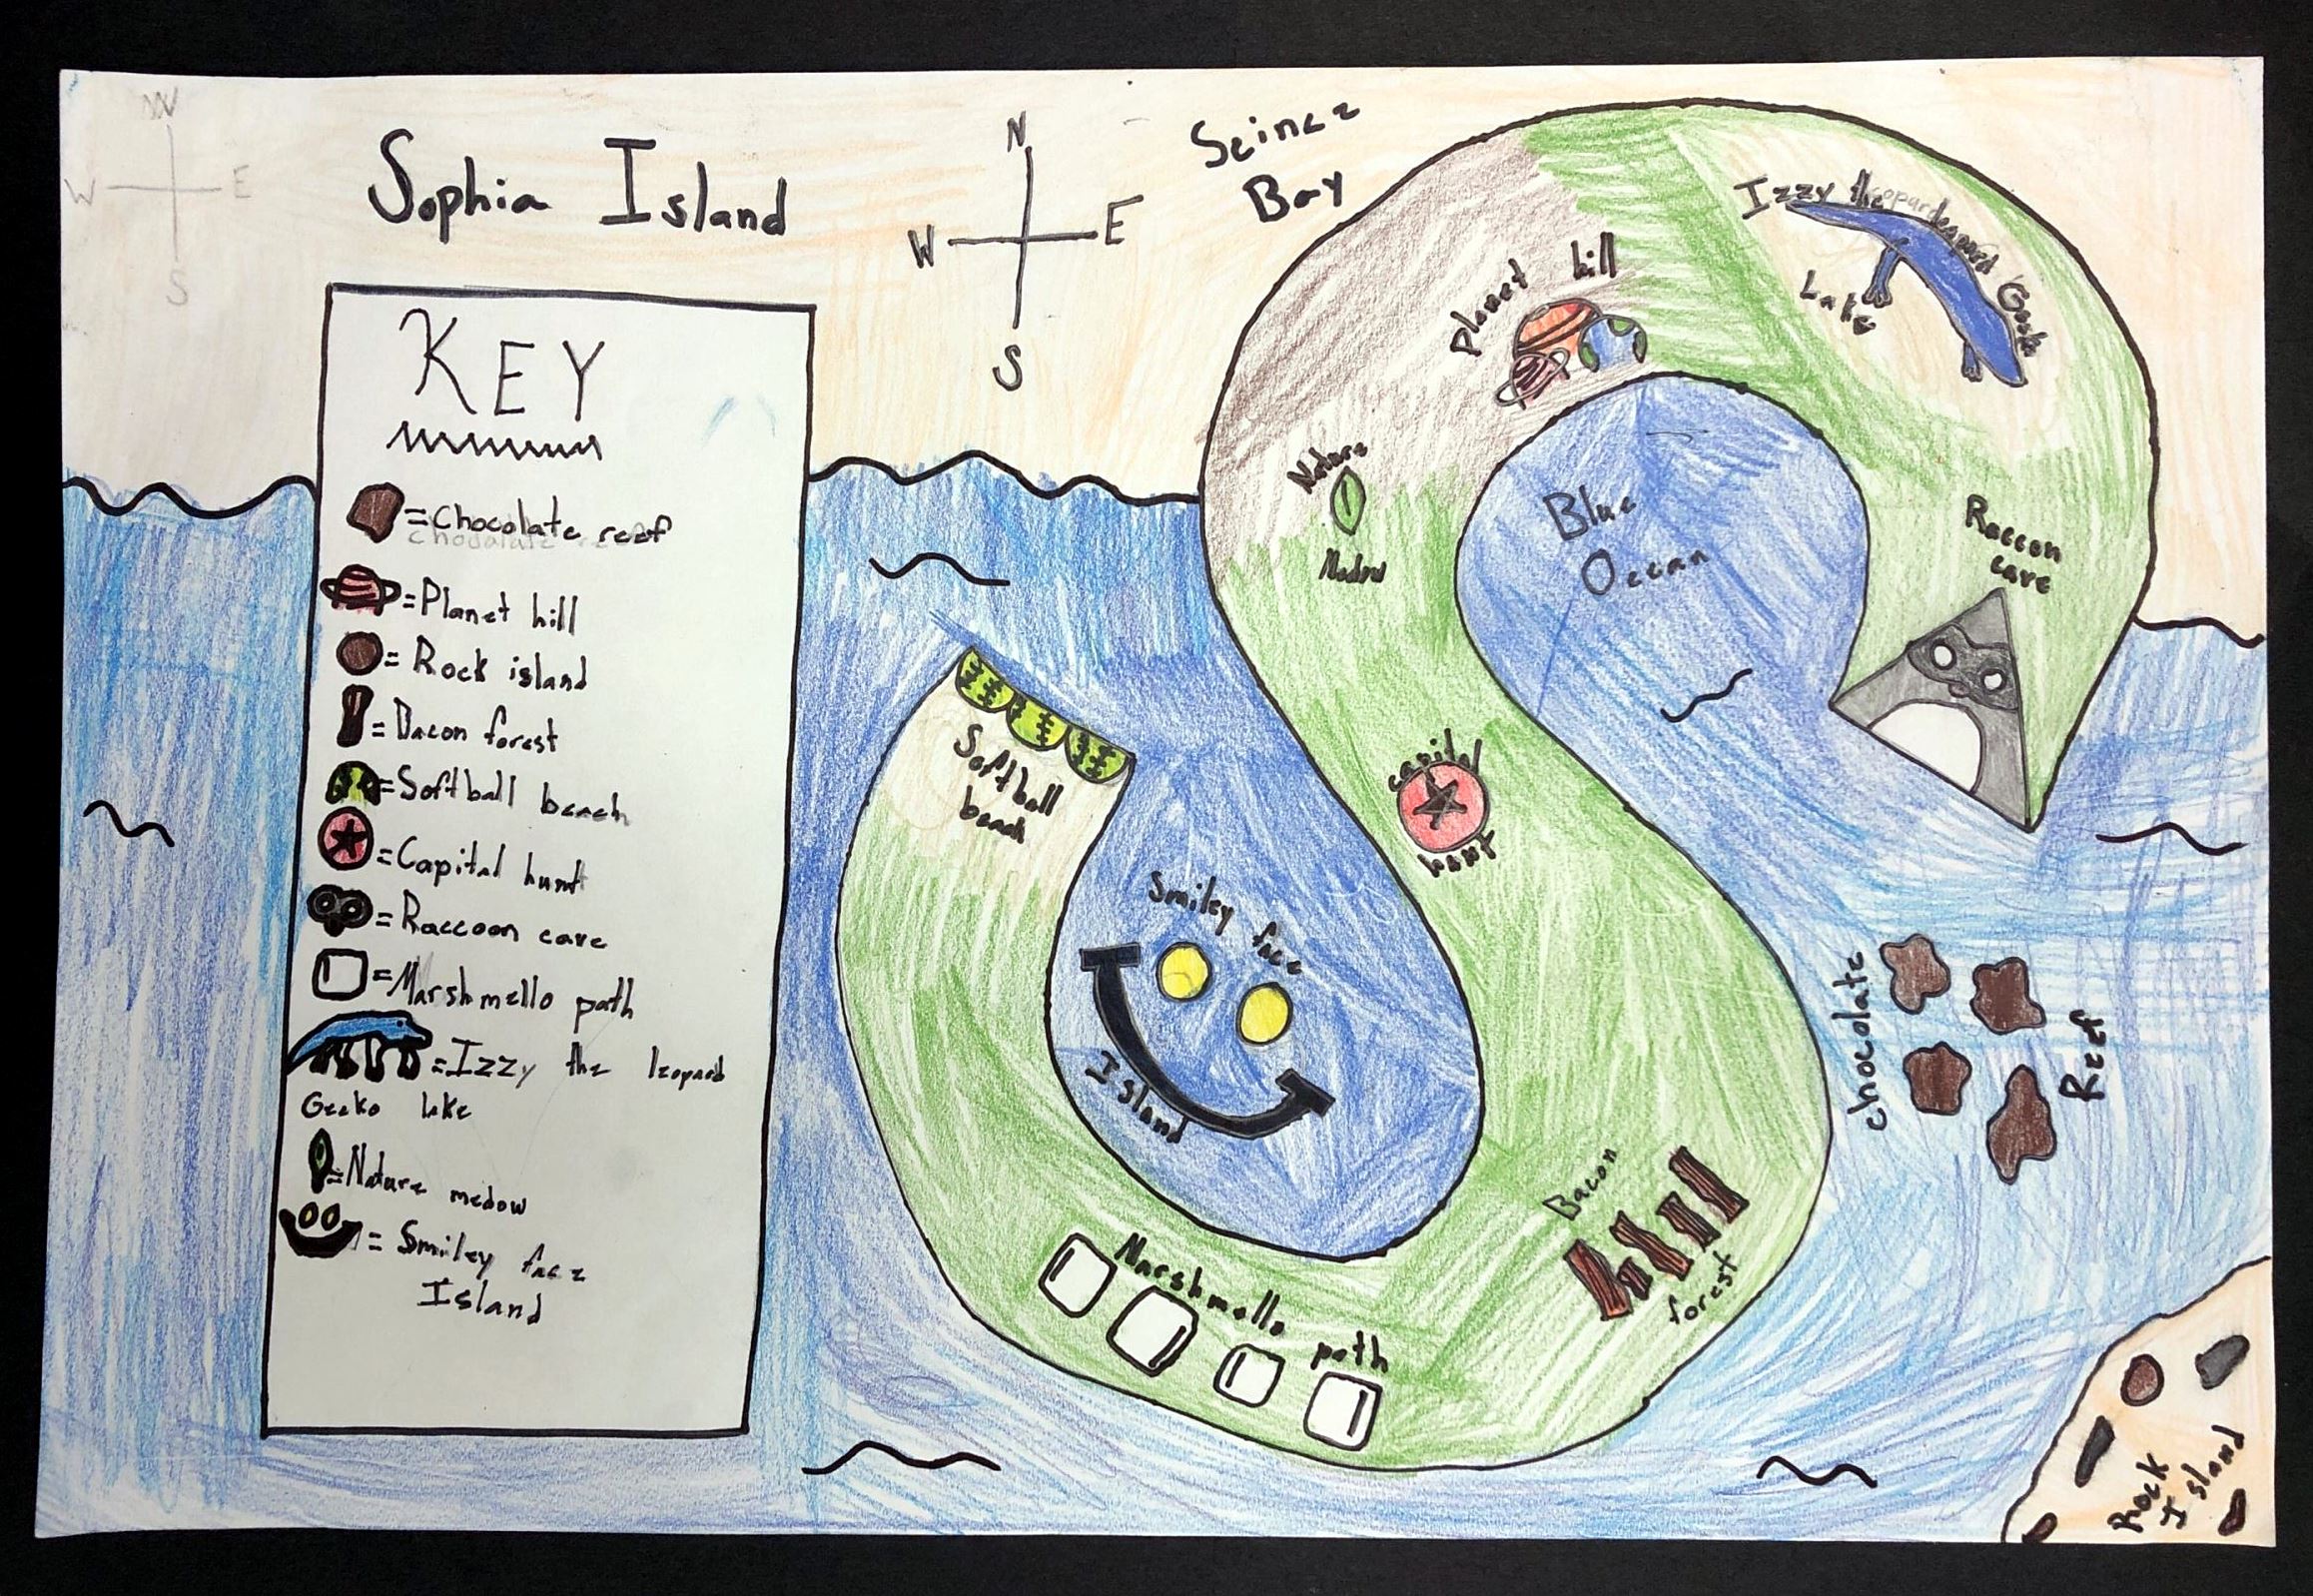 W
W E
S
Sophia Island
N
W E
S
Seince
Bay
KEY
=Chocolate reef
=Planet hill
=Rock island
=Bacon forest
=Softball beach
=Capital hunt
=Raccoon cave
=Marshmello path
=Izzy the leopard
Gecko lake
=Nature medow
=Smiley face
Island
Izzy the leopard Gecko
Lake
Planet hill
Nature
Medow
Blue
Ocean
Raccon
cave
Softball
beach
capital
hunt
Smiley face
Island
chocolate
Reef
Bacon
forest
Marshmello
path
Rock
Island